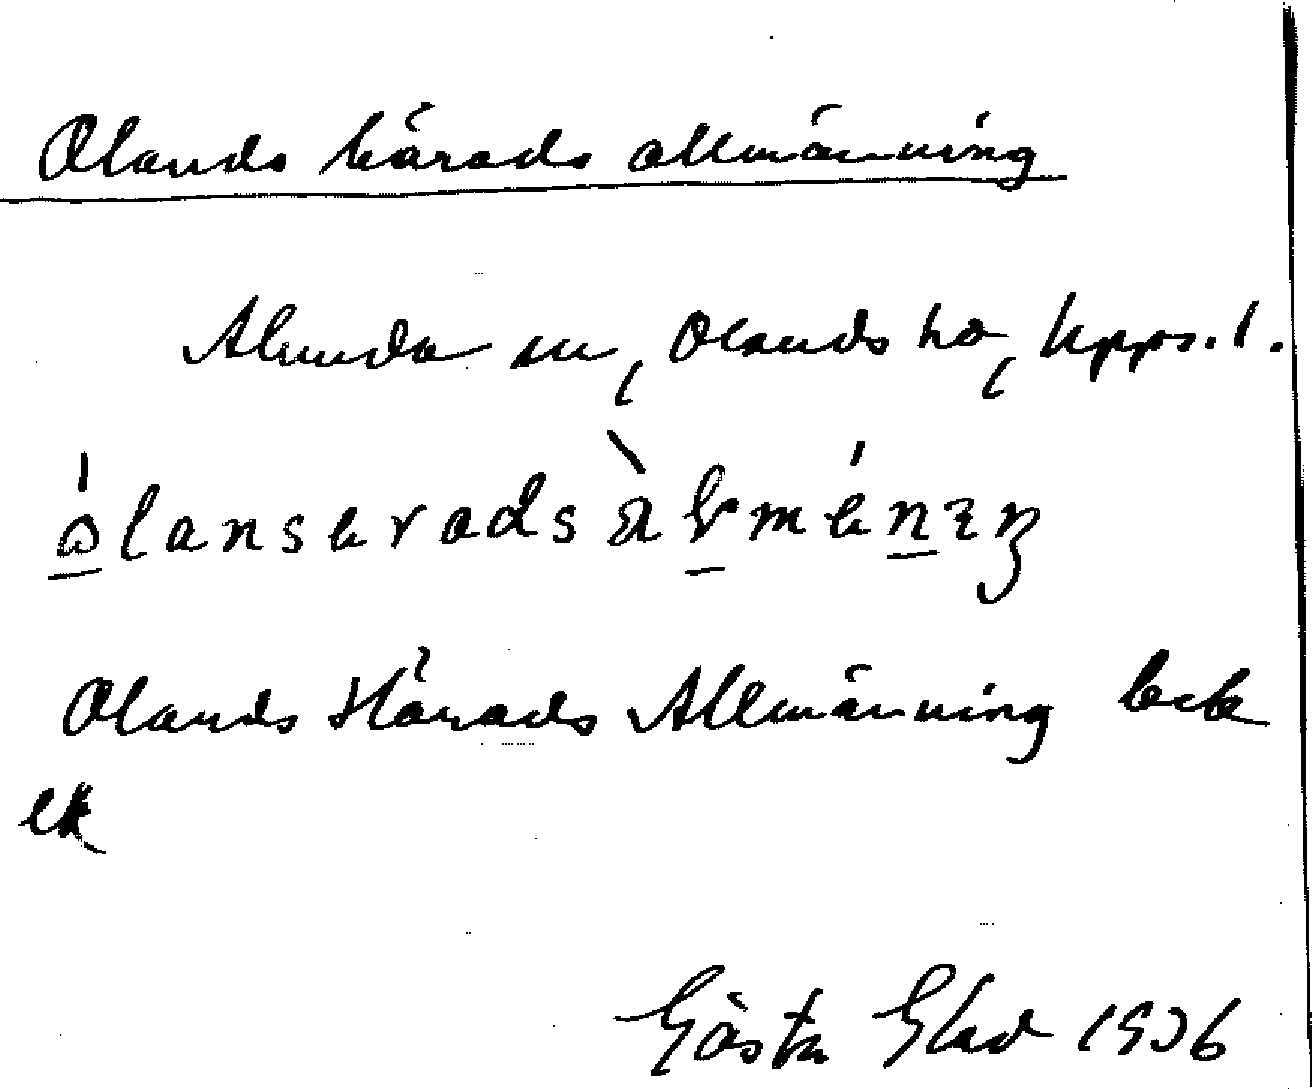 Olands härads allmänning
Alunda sn, Olands hd, Upps. l.
Olands Härads Allmänning beb
ek
Gösta Glad 1936